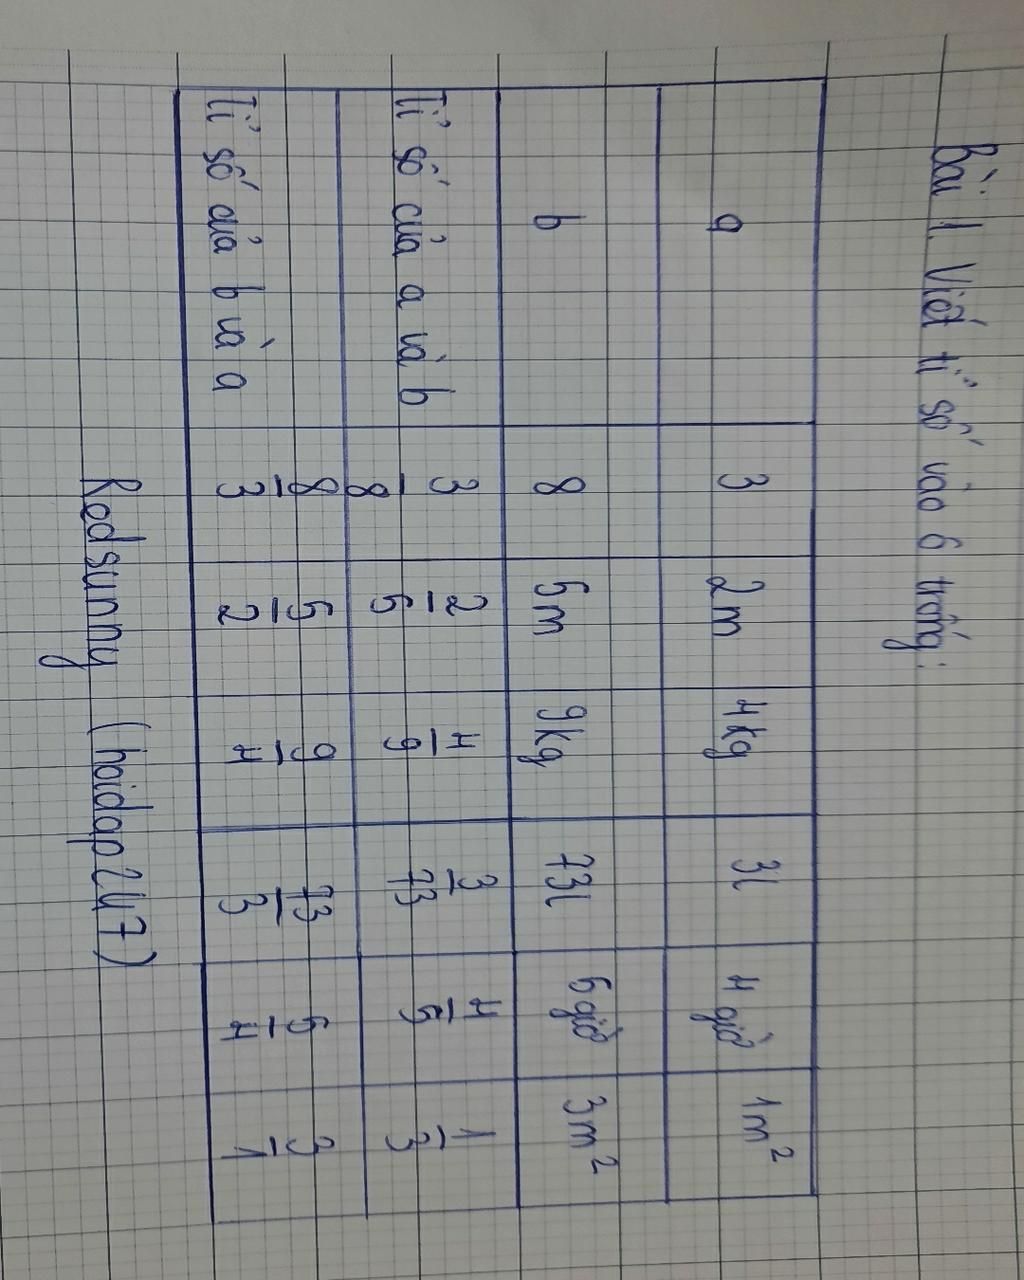 Bài 1. Viết tỉ số vào ô trống:
a 3 2m 4kg 3l 4 giờ 1m²
b 8 5m 9kg 73l 5 giờ 3m²
Tỉ số của a và b 3/8 2/5 4/9 3/73 4/5 1/3
Tỉ số của b và a 8/3 5/2 9/4 73/3 5/4 3/1
Redsunny (hoidap247)